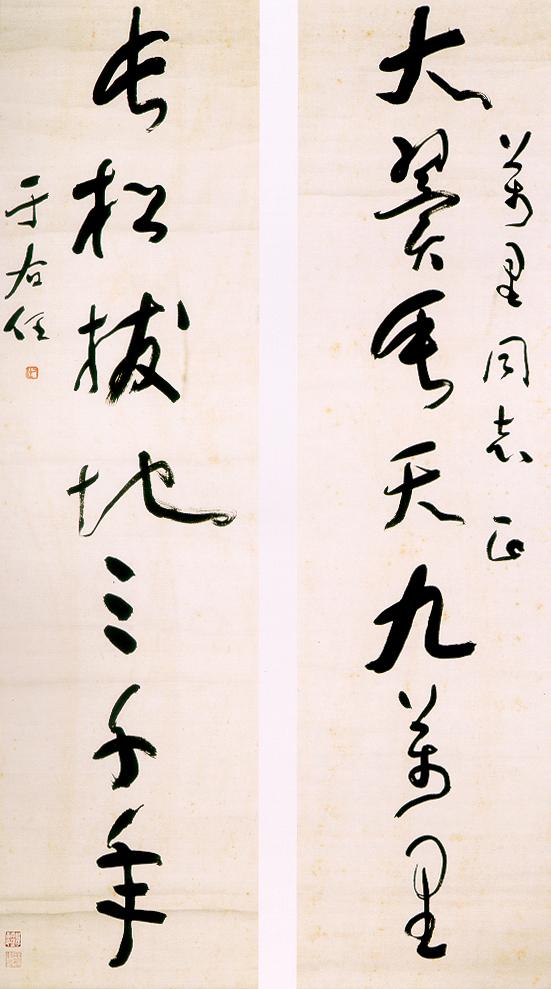 萬里同志正
大翼垂天九萬里
長松拔地三千年
于右任